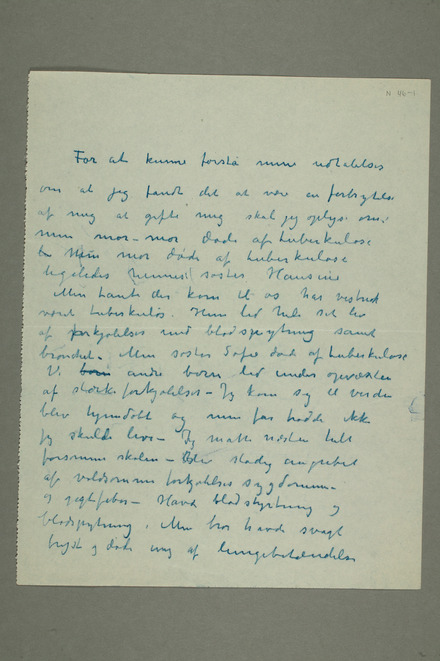 N 46-1
For at kunne forstå mine udtalelser
om at jeg fandt det at være en forbrytelse
af mig at gifte mig skal jeg oplyse om:
min mor-mor døde af tuberkulose
min mor døde af tuberkulose
ligeledes hennes søster Hansine
Min tante der kom til os har vistnok
været tuberkuløs. Hun led hele sit liv
af forkjølelser med blodspytning samt
bronchit. Min søster Sofie døde af tuberkulose
Vi born andre børn led under opvæksten
af stærke forkjølelser – Jeg kom syg til verden
blev hjemdøbt og min far trodde ikke
jeg skulde leve – Jeg måtte næsten helt
forsømme skolen – Blev stadig angrebet
af voldsomme forkjølelses sygdomme
og gigtfeber – Havde blodstyrtning og
blodspytning. Min bror havde svagt
bryst og døde ung af lungebetændelse